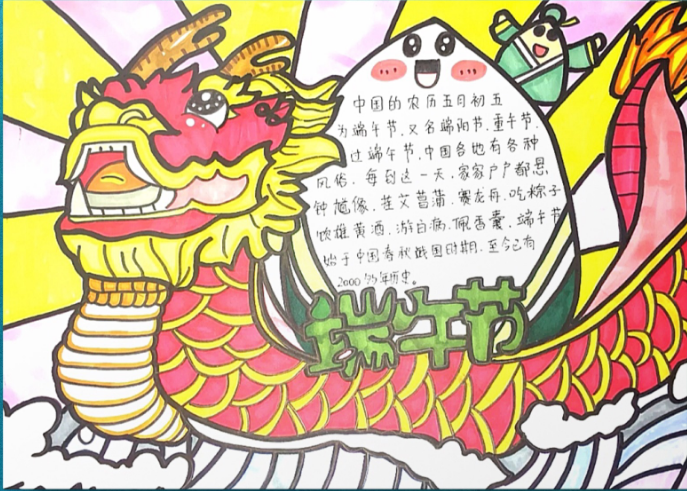 中国的农历五月初五
为端午节.又名端阳节.重午节.
过端午节.中国各地有各种
风俗.每到这一天.家家户户都悬
钟馗像.挂艾菖蒲.赛龙舟.吃粽子
饮雄黄酒.游百病.佩香囊.端午节
始于中国春秋战国时期.至今已有
2000多年历史。
端午节